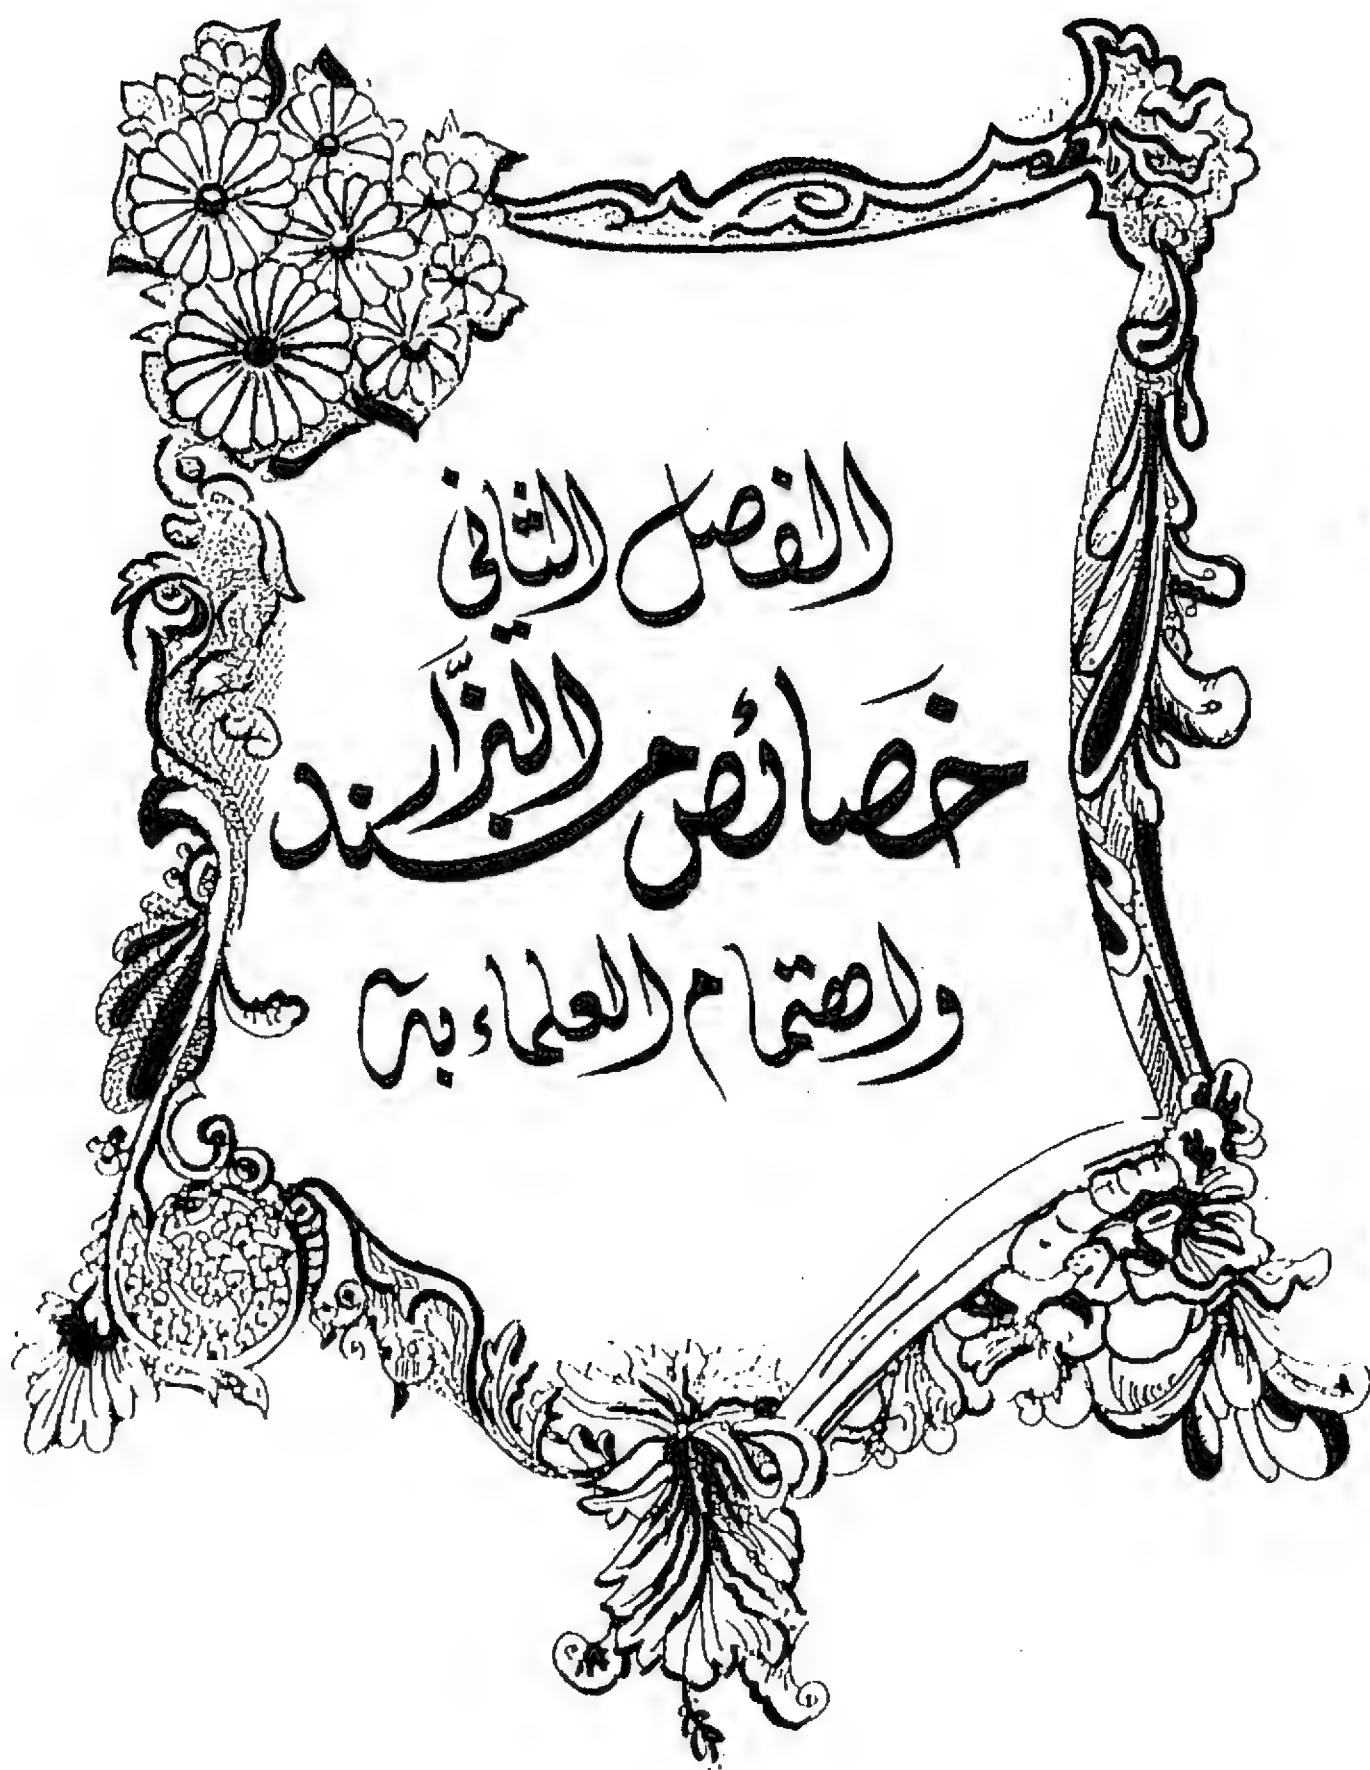 الفصل الثاني
خَصائص مسند البزَّار
واهتمام العلماء به